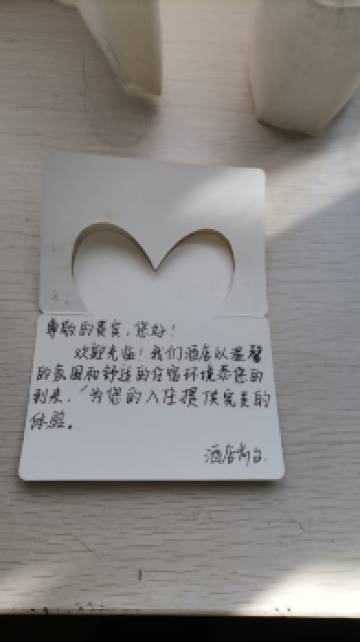 尊敬的贵宾,您好!
欢迎光临!我们酒店以温馨
的氛围和舒适的住宿环境恭您的
到来,为您的入住提供完美的
体验。
酒店前台